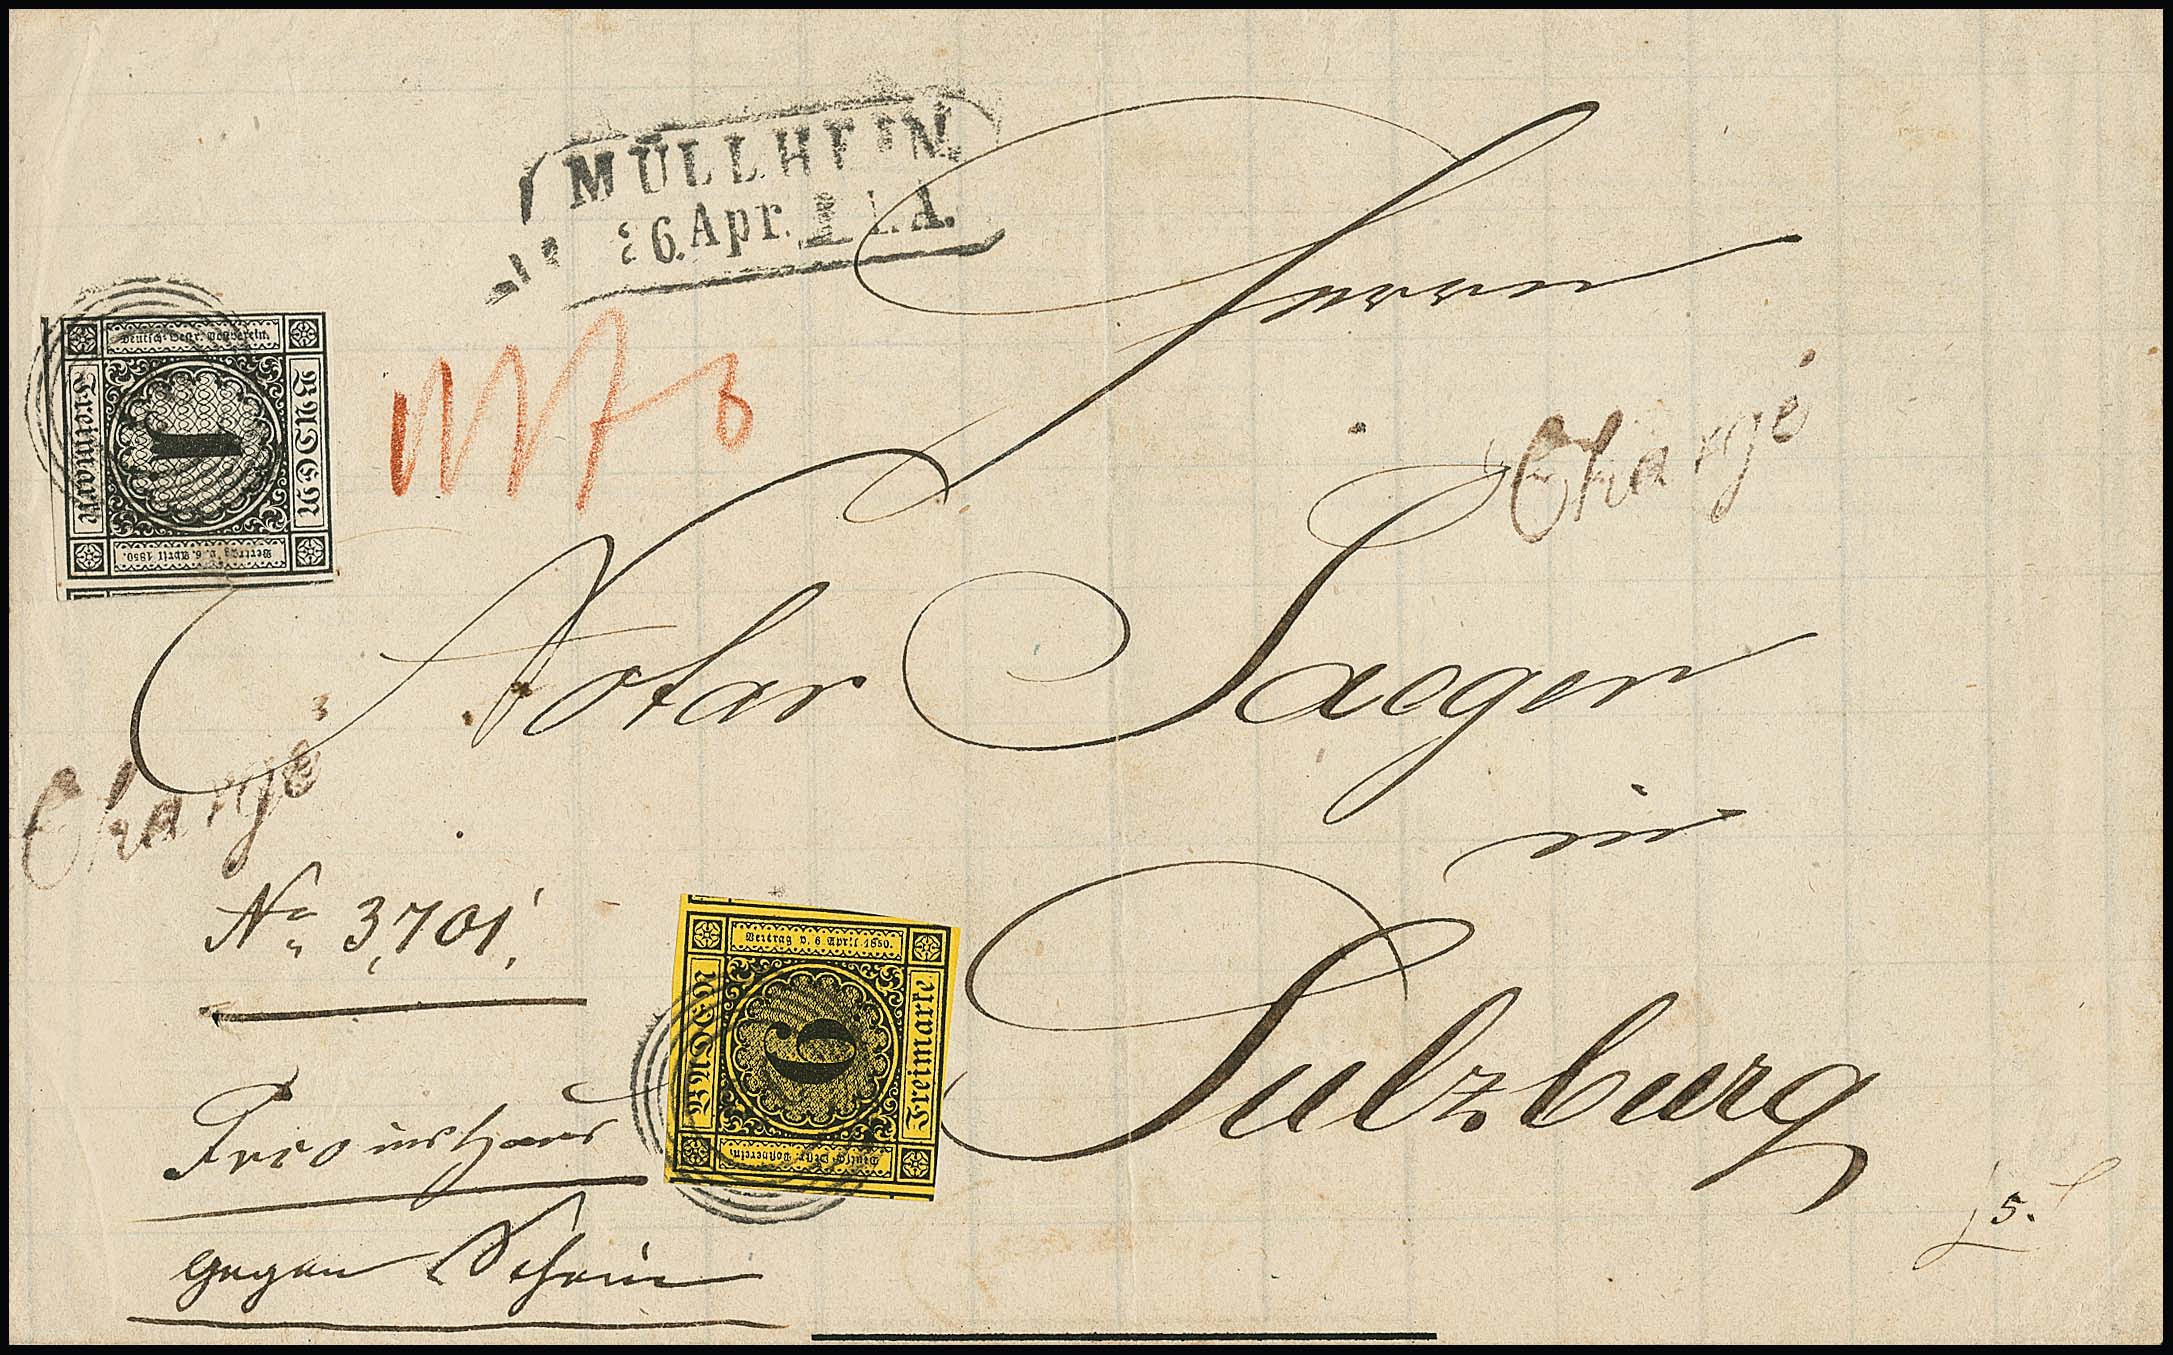 MÜLLHEIM
26. Apr. A.
Herrn
Deutsch-Oestr. Postverein.
BADEN
Freimarke
1
Vertrag v. 6. April 1850.
Chargé
Notar Saeger
in
Chargé
No 3,701.
Sulzburg
Vertrag v. 6 April 1850.
BADEN
Freimarke
6
Deutsch-Oestr. Postverein.
Frco ins Haus
gegen Schein
5.